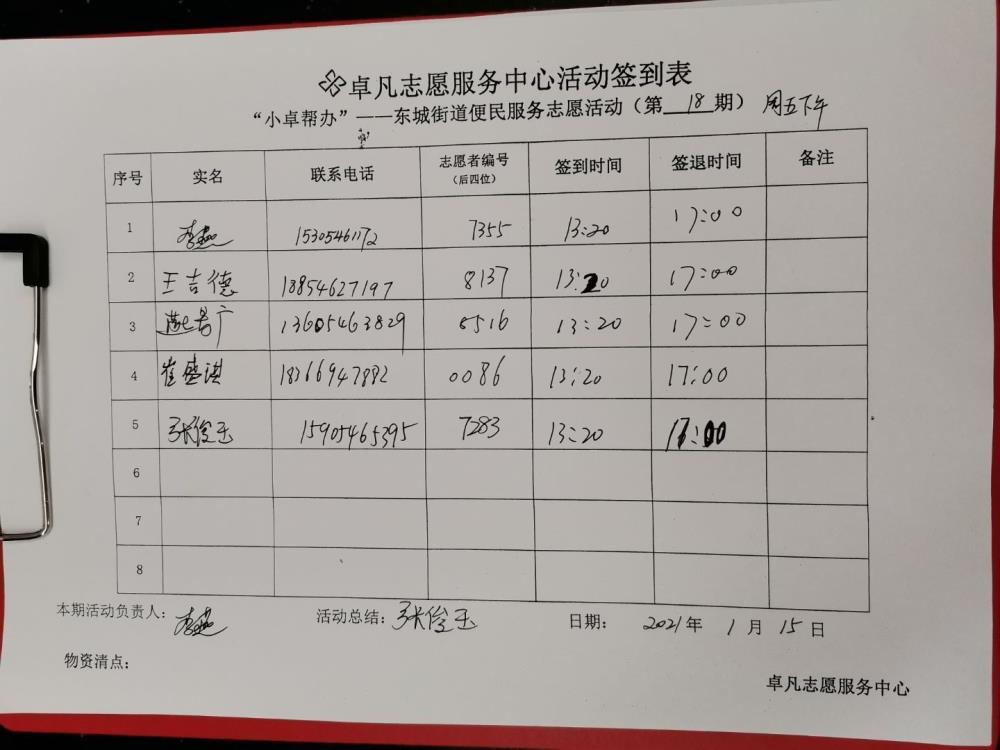 卓凡志愿服务中心活动签到表
“小卓帮办”——东城街道便民服务志愿活动（第 18 期） 周五下午
序号 实名 联系电话 志愿者编号（后四位） 签到时间 签退时间 备注
1 李燕 15305461172 7355 13:20 17:00
2 王吉德 18854627197 8137 13:20 17:00
3 13605463829 8516 13:20 17:00
4 崔盛淇 18366947882 0086 13:20 17:00
5 张俊玉 15905465395 7283 13:20 17:00
6
7
8
本期活动负责人： 李燕 活动总结： 张俊玉 日期： 2021年 1月 15日
物资清点：
卓凡志愿服务中心